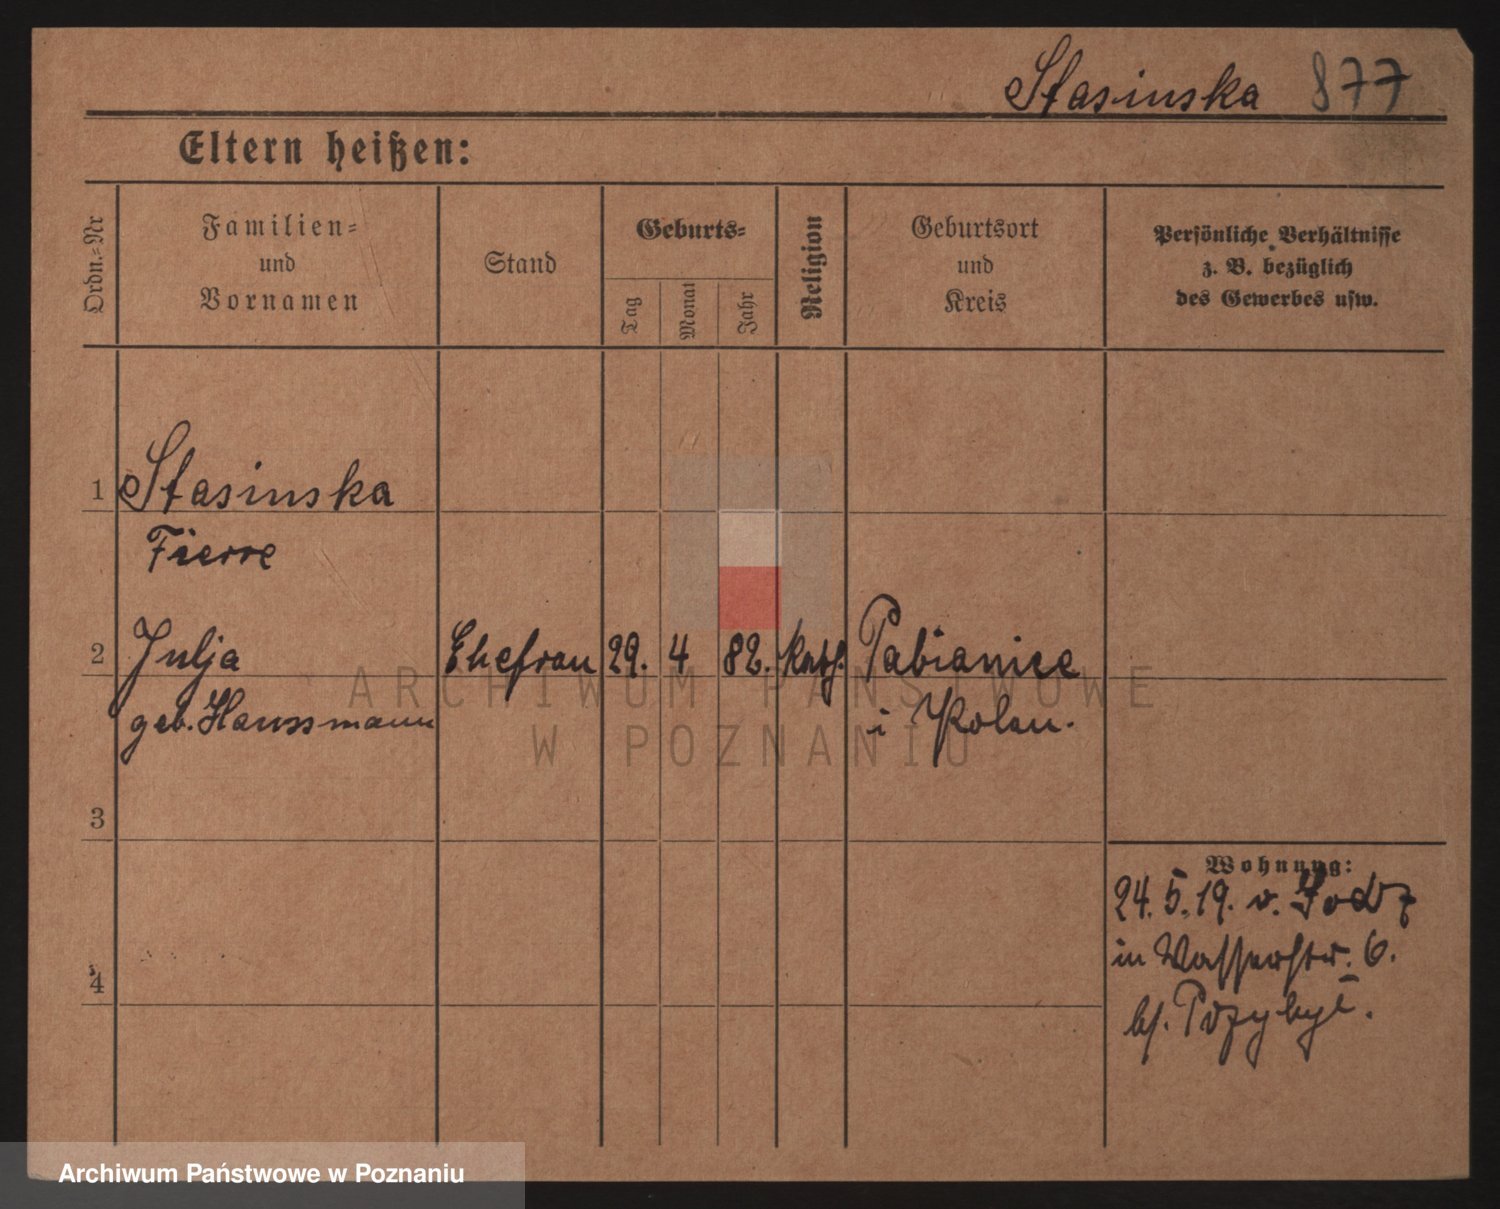 Stasinska 877
Eltern heißen:
Ordn.=Nr
Familien=
und
Vornamen
Stand
Geburts=
Tag
Monat
Jahr
Religion
Geburtsort
und
Kreis
Persönliche Verhältnisse
z. B. bezüglich
des Gewerbes usw.
1 Stasinska
Fierre
2 Julja Ehefrau 29. 4 82. kath. Pabianice
geb. Haussmann i Polen.
3
Wohnung:
24. 5. 19. v. Lodz
in Wasserstr. 6.
4
bs.
ARCHIWUM PAŃSTWOWE
W POZNANIU
Archiwum Państwowe w Poznaniu